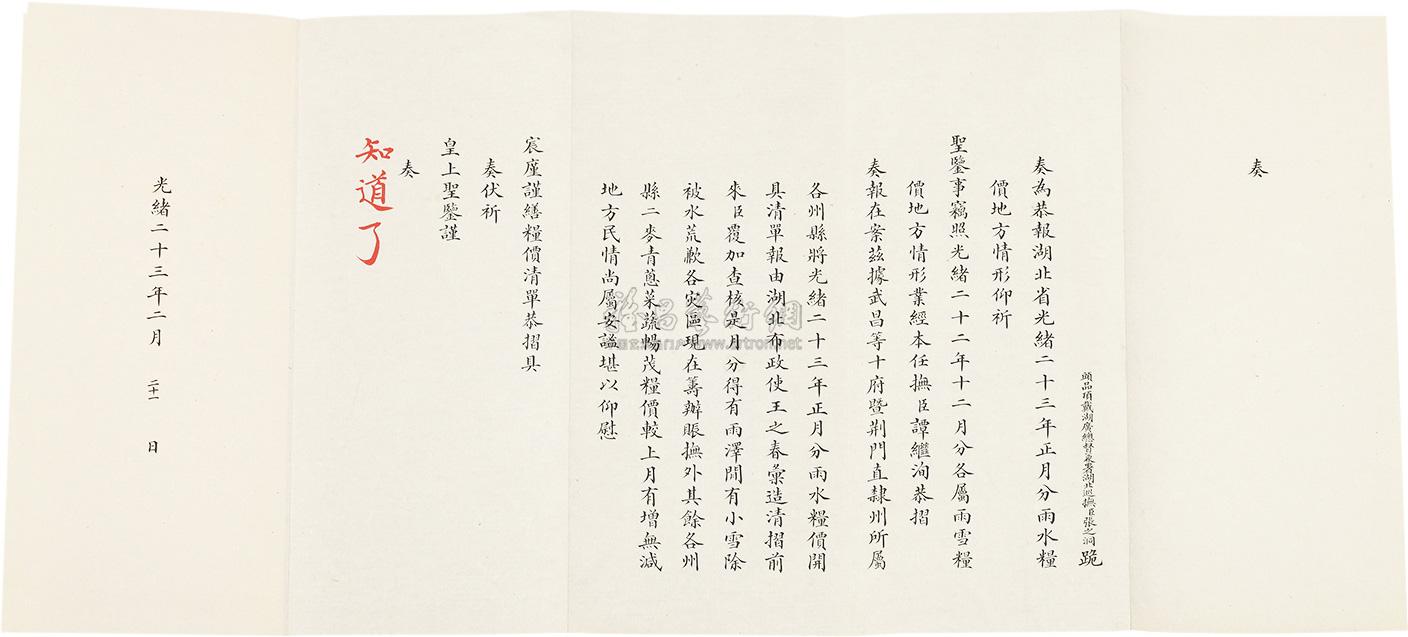 奏
頭品頂戴湖廣總督兼署湖北巡撫臣張之洞跪
奏為恭報湖北省光緒二十三年正月分雨水糧
價地方情形仰祈
聖鑒事竊照光緒二十二年十二月分各屬雨雪糧
價地方情形業經本任撫臣譚繼洵恭摺
奏報在案茲據武昌等十府暨荆門直隸州所屬
各州縣將光緒二十三年正月分雨水糧價開
具清單報由湖北布政使王之春彙造清摺前
來臣覆加查核是月分得有雨澤間有小雪除
被水荒歉各災區現在籌辦賑撫外其餘各州
縣二麥青蔥菜蔬暢茂糧價較上月有增無減
地方民情尚屬安謐堪以仰慰
宸廑謹繕糧價清單恭摺具
奏伏祈
皇上聖鑒謹
奏
知道了
光緒二十三年二月 二十一 日
雅昌藝術網
www.artron.net